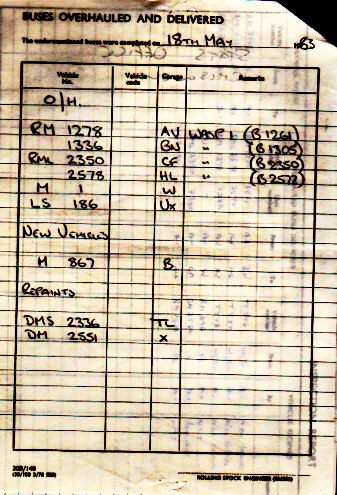 BUSES OVERHAULED AND DELIVERED
The undermentioned buses were completed on 18TH MAY 1983
Vehicle No. Vehicle code Garage Remarks
O/H.
RM 1278 AV WARP 1 (B1261)
1336 BN " (B1305)
RML 2350 CF " (B2350)
2578 HL " (B2572)
M 1 W
LS 186 UX
NEW VEHICLES
M 867 B
REPAINTS
DMS 2336 TL
DM 2551 X
ROLLING STOCK ENGINEER (BUSES)